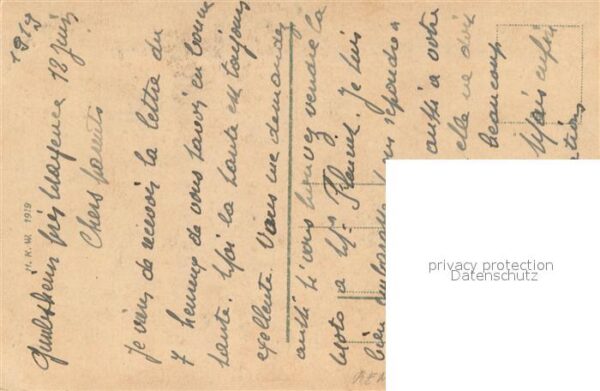 1919
près Mayence 12 juin
Chers parents
Je viens de recevoir la lettre du
7 heureux de vous savoir en bonne
santé. Moi la santé est toujours
exellente. Vous me demandez
aussi si vous pouvez vendre la
Moto a Mr
Je suis
bien vous répondre a
aussi a votre
elle ne doit
beaucoup
Mais enfin
M. K. W. 1919
privacy protection
Datenschutz